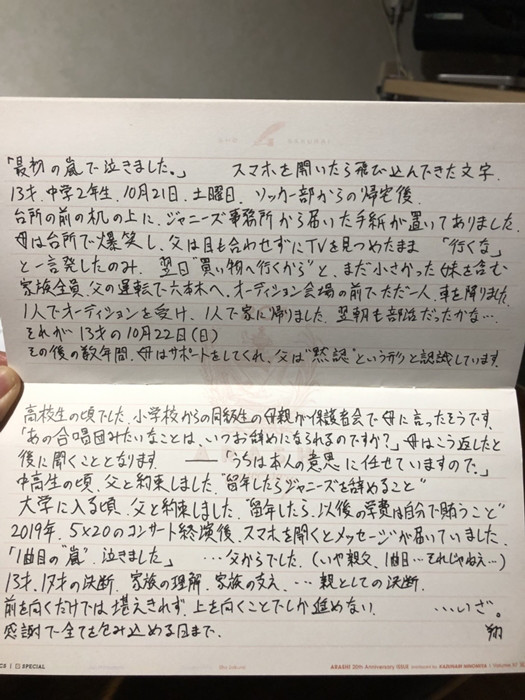 「最初の嵐で泣きました。」 スマホを開いたら飛び込んできた文字.
13才.中学2年生.10月21日.土曜日.ソッカー部からの帰宅後.
台所の前の机の上に、ジャニーズ事務所から届いた手紙が置いてありました.
母は台所で爆笑し、父は目も合わせずにTVを見つめたまま 「行くな」
と一言発したのみ. 翌日"買い物へ行くから"と、まだ小さかった妹を含む
家族全員.父の運転で六本木へ.オーディション会場の前でただ一人.車を降りました.
1人でオーディションを受け、1人で家に帰りました.翌朝も部活だったかな…
それが 13才の10月22日(日)
その後の数年間.母はサポートをしてくれ、父は"黙認"という形と認識しています.
高校生の頃でした.小学校からの同級生の母親が保護者会で母に言ったそうです.
「あの合唱団みたいなことは、いつお辞めになられるのですか?」母はこう返したと
後に聞くこととなります. ――「うちは本人の意思に任せていますので.」
中高生の頃、父と約束しました."留年したらジャニーズを辞めること"
大学に入る頃、父と約束しました."留年したら、以後の学費は自分で賄うこと"
2019年.5×20のコンサート終演後、スマホを開くとメッセージが届いていました.
「1曲目の"嵐".泣きました」 …父からでした.(いや親父、1曲目…それじゃねえ…)
13才.17才の決断.家族の理解.家族の支え.…親としての決断.
前を向くだけでは堪えきれず.上を向くことでしか進めない. …いざ。
感謝で全てを包み込める日まで. 翔
CS | SPECIAL
ARASHI 20th Anniversary ISSUE produced by KAZUNARI NINOMIYA